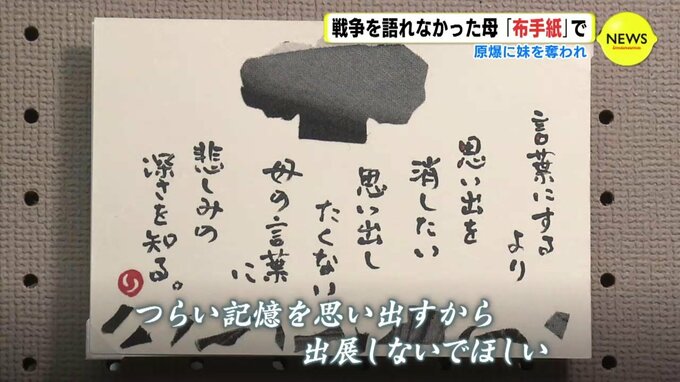 戦争を語れなかった母「布手紙」で
原爆に妹を奪われ
NEWS
言葉にする
より
思い出を
消したい
思い出し
たくない
母の言葉
に
悲しみの
深さを知る。
つらい記憶を思い出すから
出展しないでほしい